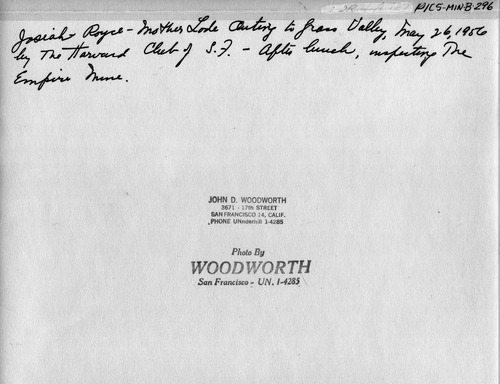 PICS-MIN-B-296
Josiah Royce - Mother Lode Outing to Grass Valley, May 26, 1956
by The Harvard Club of S.F. - After lunch, inspecting The
Empire Mine.
JOHN D. WOODWORTH
3671 - 17TH STREET
SAN FRANCISCO 14, CALIF.
PHONE UNnderhill 1-4285
Photo By
WOODWORTH
San Francisco - UN. 1-4285